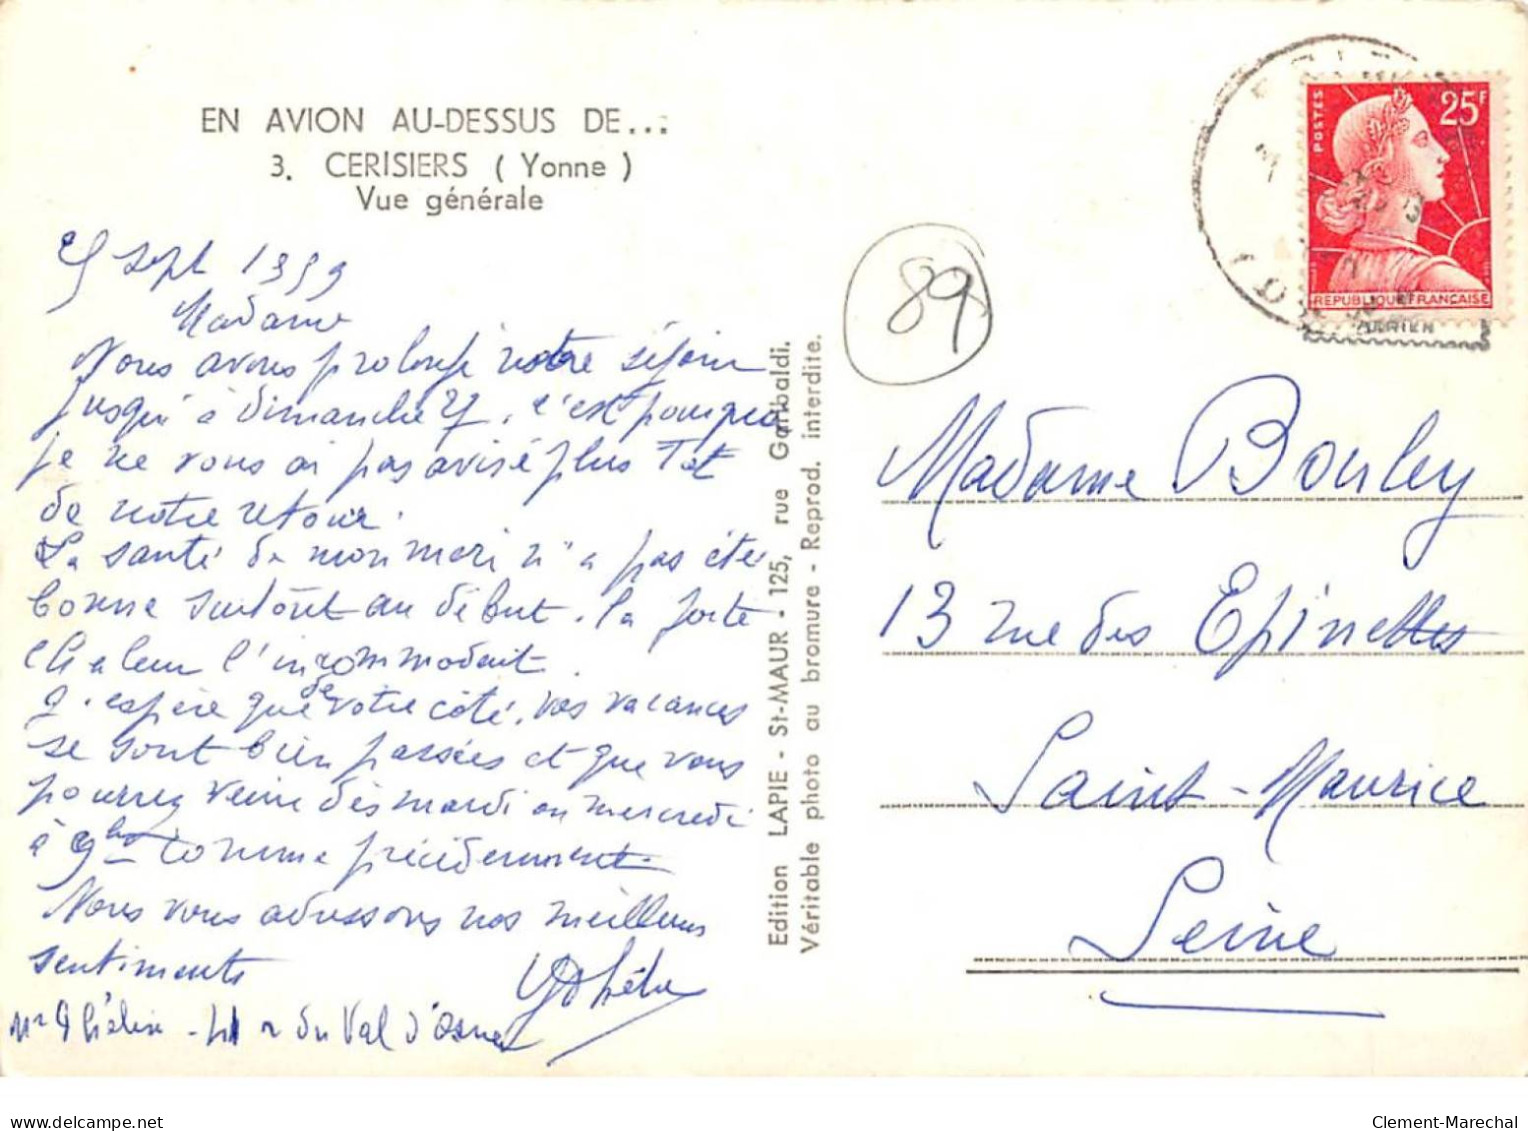 EN AVION AU-DESSUS DE...
3. CERISIERS ( Yonne )
Vue générale
sept 1959
Madame
Nous avons prolongé notre séjour
jusqu'à dimanche 27, c'est pourquoi
je ne vous ai pas avisé plus tôt
de notre retour.
La santé de mon mari n'a pas été
bonne surtout au début. la forte
chaleur l'incommodait.
J'espère que de votre côté, vos vacances
se sont bien passées et que vous
pourrez venir dès mardi ou mercredi
à 9h comme précédemment.
Nous vous adressons nos meilleurs
sentiments
du Val d'Osne
Edition LAPIE - St-MAUR - 125, rue Garibaldi.
Véritable photo au bromure - Reprod. interdite.
89
POSTES
25F
REPUBLIQUE FRANÇAISE
AERIEN
Madame Bouley
13 rue des Epinettes
Saint-Maurice
Seine
Clement-Marechal